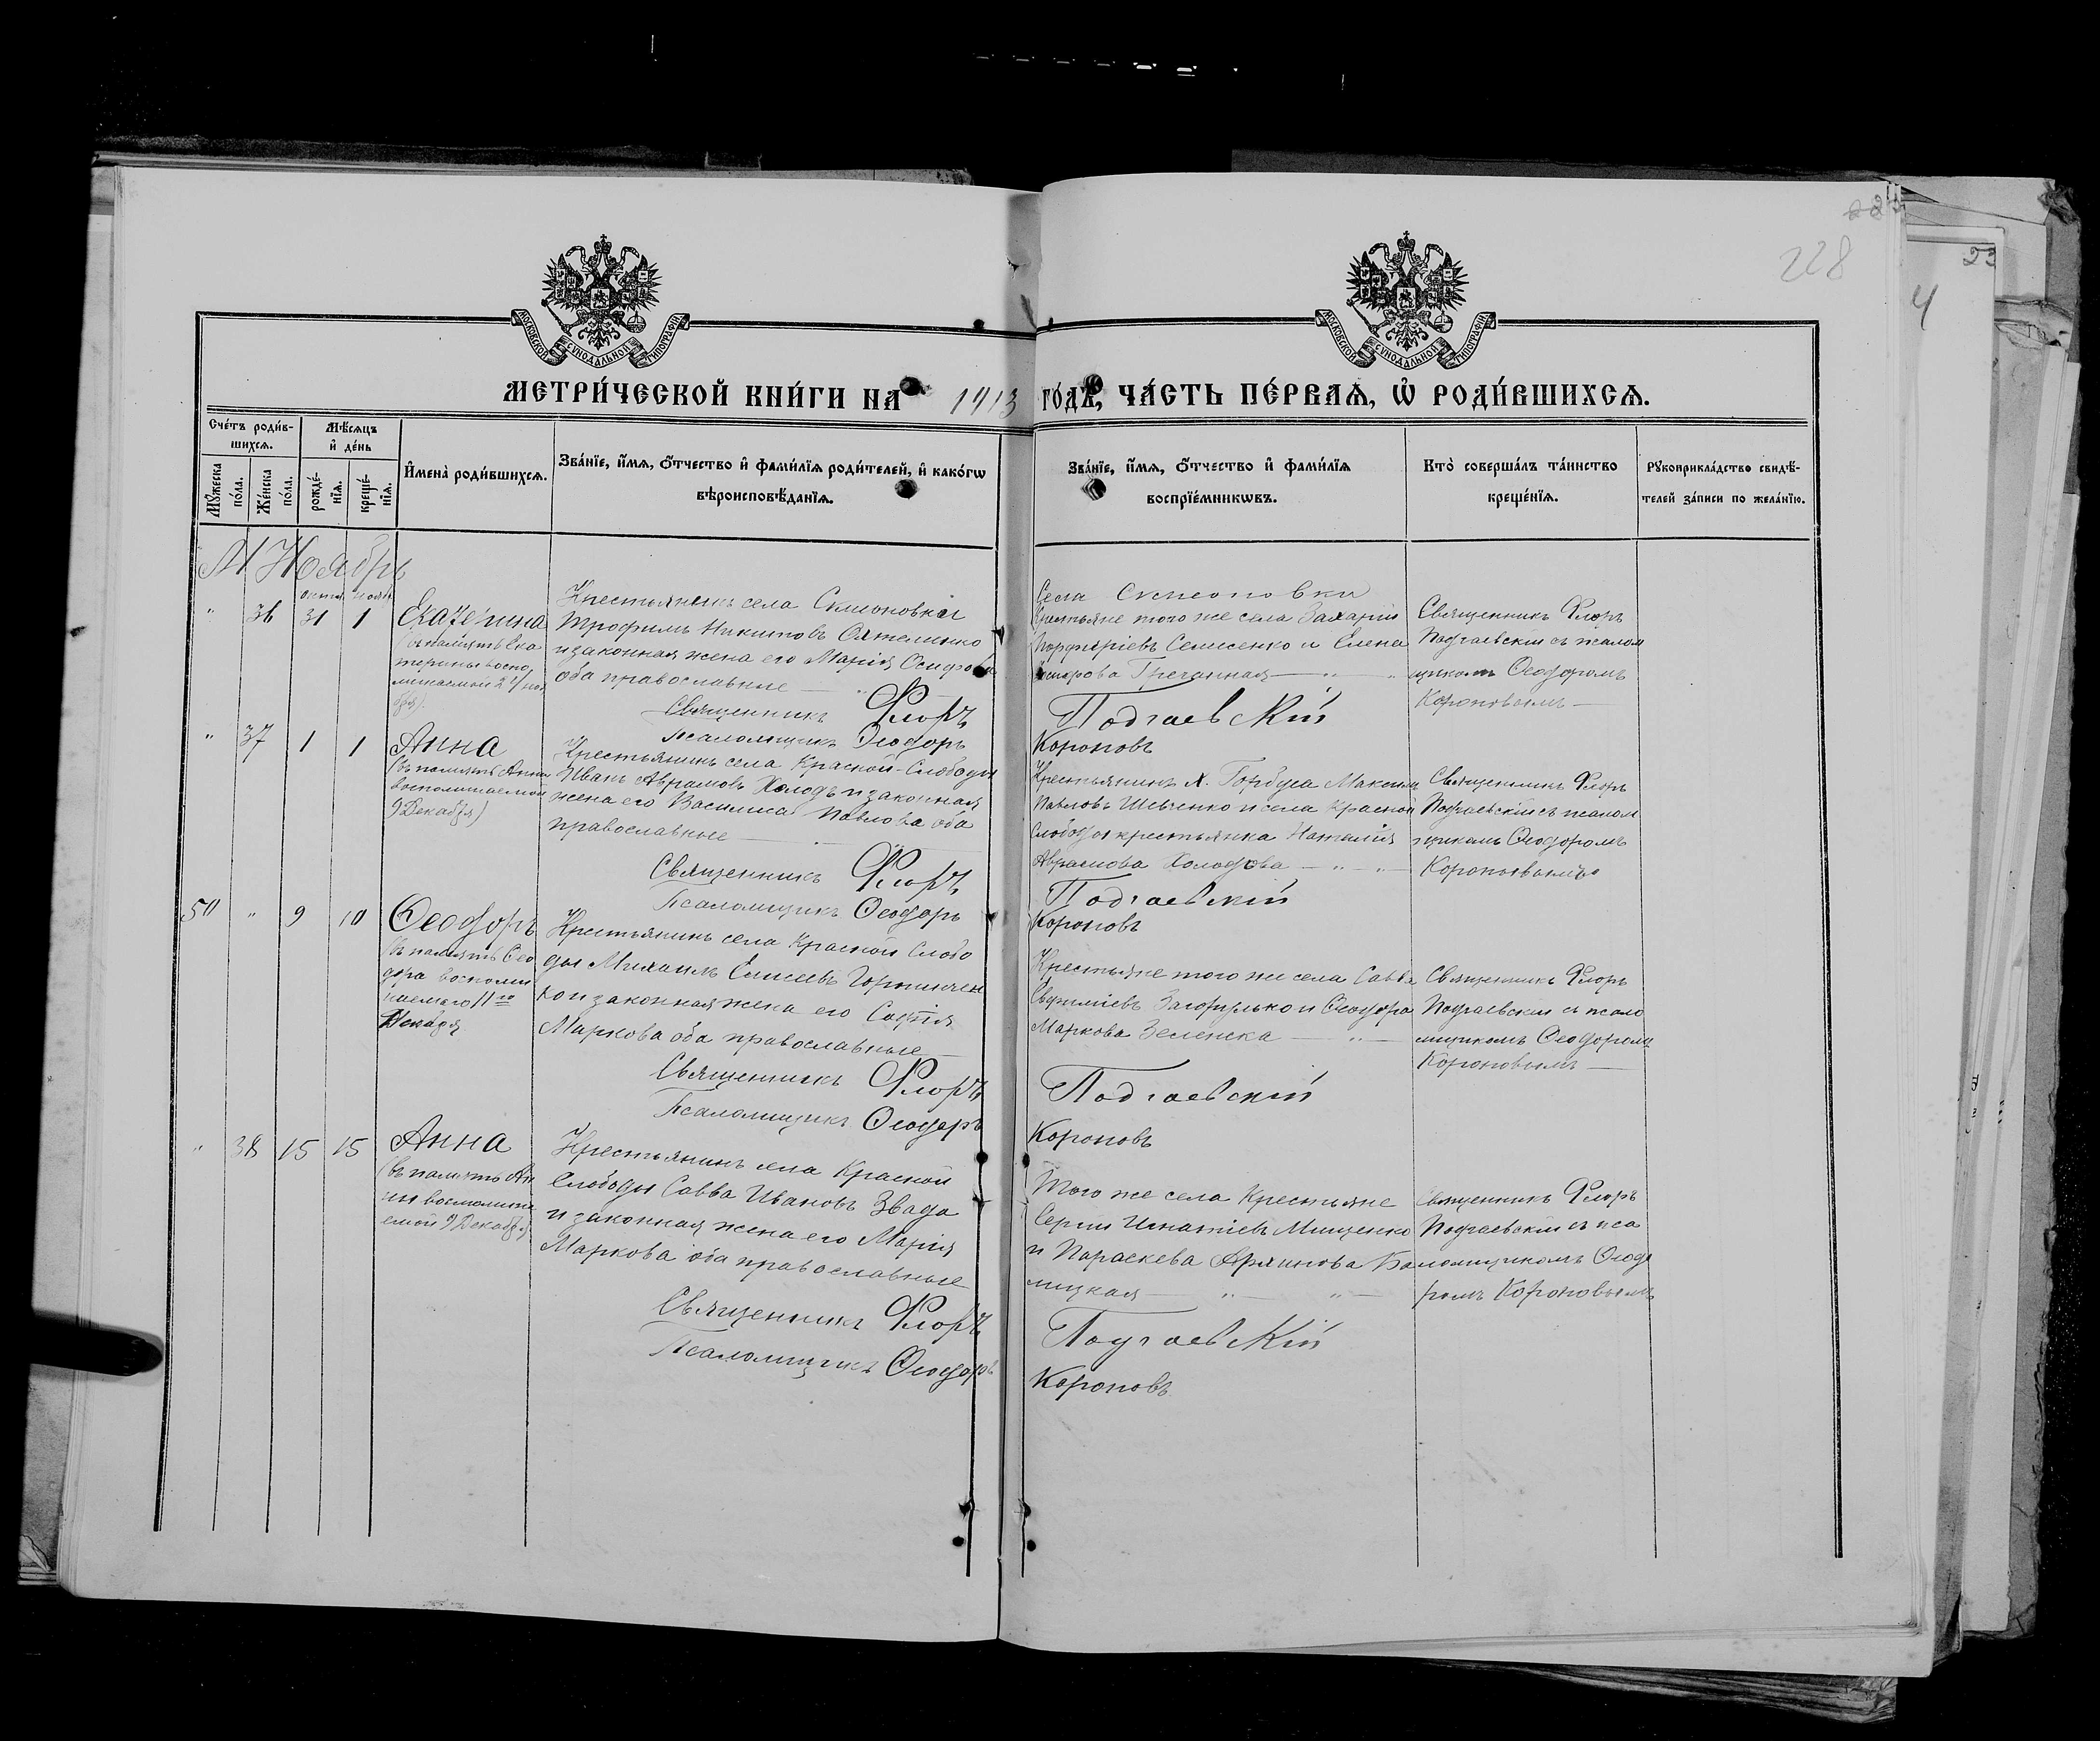 228
23
4
МОСКОВСКОЙ СѴНОДАЛЬНОЙ ТИПОГРАФІИ
МОСКОВСКОЙ СѴНОДАЛЬНОЙ ТИПОГРАФІИ
МЕТРИ́ЧЕСКОЙ КНИ́ГИ НА 1913 ГО́ДЪ, ЧА́СТЬ ПЕ́РВАѦ, Ѡ҆ РОДИ́ВШИХСѦ.
Сче́тъ роди́в-
шихсѧ.
Мѣ́сѧцъ
и҆ де́нь
Мꙋ́жеска
по́ла.
Же́нска
по́ла.
рожде́-
нїѧ.
креще́-
нїѧ.
И҆мена̀ роди́вшихсѧ.
Зва́нїе, и҆́мѧ, ѻ҆́тчество и҆ фами́лїѧ роди́телей, и҆ како́гѡ
вѣроисповѣ́данїѧ.
Зва́нїе, и҆́мѧ, ѻ҆́тчество и҆ фами́лїѧ
воспрїе́мникѡвъ.
Кто̀ соверша́лъ та́инство
креще́нїѧ.
Рꙋкоприкла́дство свидѣ́-
телей за́писи по жела́нїю.
М Ноябрь
" 36 31 1
Екатерина
(въ память Ека
терины воспо
минаемой 24 ноя
бря)
Крестьянинъ села
Трофимъ Никитовъ
и законная жена его Марія Осипова
оба православные
Священникъ Флоръ
Псаломщикъ Ѳеодоръ
Села
Крестьяне того же села Захарій
Порфиріевъ Семисенко и Елена
Гречанная
Подгаевскій
Короповъ
Священникъ Флоръ
Подгаевскій съ псалом
щикомъ Ѳеодоромъ
Короповымъ
" 37 1 1
Анна
(въ память Анны
воспоминаемой
9 Декабря)
Крестьянинъ села Красной-Слободы
Иванъ Аврамовъ Холодъ и законная
жена его Василиса Павлова оба
православные
Священникъ Флоръ
Псаломщикъ Ѳеодоръ
Крестьянинъ х. Горбуса Максимъ
Павловъ Шевченко и села Красной
Слободы крестьянка Наталія
Аврамова Холодова
Подгаевскій
Короповъ
Священникъ Флоръ
Подгаевскій съ псалом
щикомъ Ѳеодоромъ
Короповымъ
50 " 9 10
Ѳеодоръ
(въ память Ѳео
дора воспоми
наемаго 11го
Декабря
Крестьянинъ села Красной Слобо
ды Михаилъ Елисеевъ Горпинчен
ко и законная жена его Софія
Маркова оба православные
Священникъ Флоръ
Псаломщикъ Ѳеодоръ
Крестьяне того же села Савва
Евфиміевъ Загорулько и Ѳеодора
Маркова Зеленска
Подгаевскій
Короповъ
Священникъ Флоръ
Подгаевскій съ псало
мщикомъ Ѳеодоромъ
Короповымъ
" 38 15 15
Анна
(въ память Ан
ны воспомина
емой 9 Декабря)
Крестьянинъ села Красной
Слободы Савва Ивановъ Звада
и законная жена его Марія
Маркова оба православные
Священникъ Флоръ
Псаломщикъ Ѳеодоръ
Того же села Крестьяне
Сергій Игнатіевъ Мищенко
и Параскева
Подгаевскій
Короповъ
Священникъ Флоръ
Подгаевскій съ пса
ломщикомъ Ѳеодо
ромъ Короповымъ